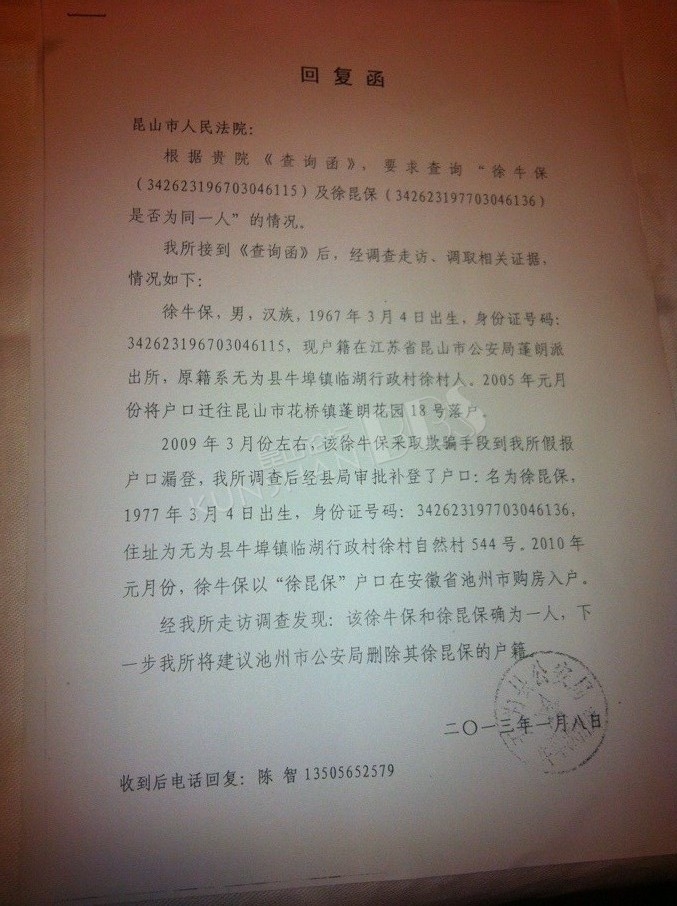 回复函
昆山市人民法院：
根据贵院《查询函》，要求查询“徐牛保
（342623196703046115）及徐昆保（342623197703046136）
是否为同一人”的情况。
我所接到《查询函》后，经调查走访、调取相关证据，
情况如下：
徐牛保，男，汉族，1967年3月4日出生，身份证号码：
342623196703046115，现户籍在江苏省昆山市公安局蓬朗派
出所，原籍系无为县牛埠镇临湖行政村徐村人。2005年元月
份将户口迁往昆山市花桥镇蓬朗花园18号落户。
2009年3月份左右，该徐牛保采取欺骗手段到我所假报
户口漏登，我所调查后经县局审批补登了户口：名为徐昆保，
1977年3月4日出生，身份证号码：342623197703046136，
住址为无为县牛埠镇临湖行政村徐村自然村544号。2010年
元月份，徐牛保以“徐昆保”户口在安徽省池州市购房入户。
经我所走访调查发现：该徐牛保和徐昆保确为一人，下
一步我所将建议池州市公安局删除其徐昆保的户籍。
二〇一三年一月八日
收到后电话回复：陈 智 13505652579
KUNSHAN BBS